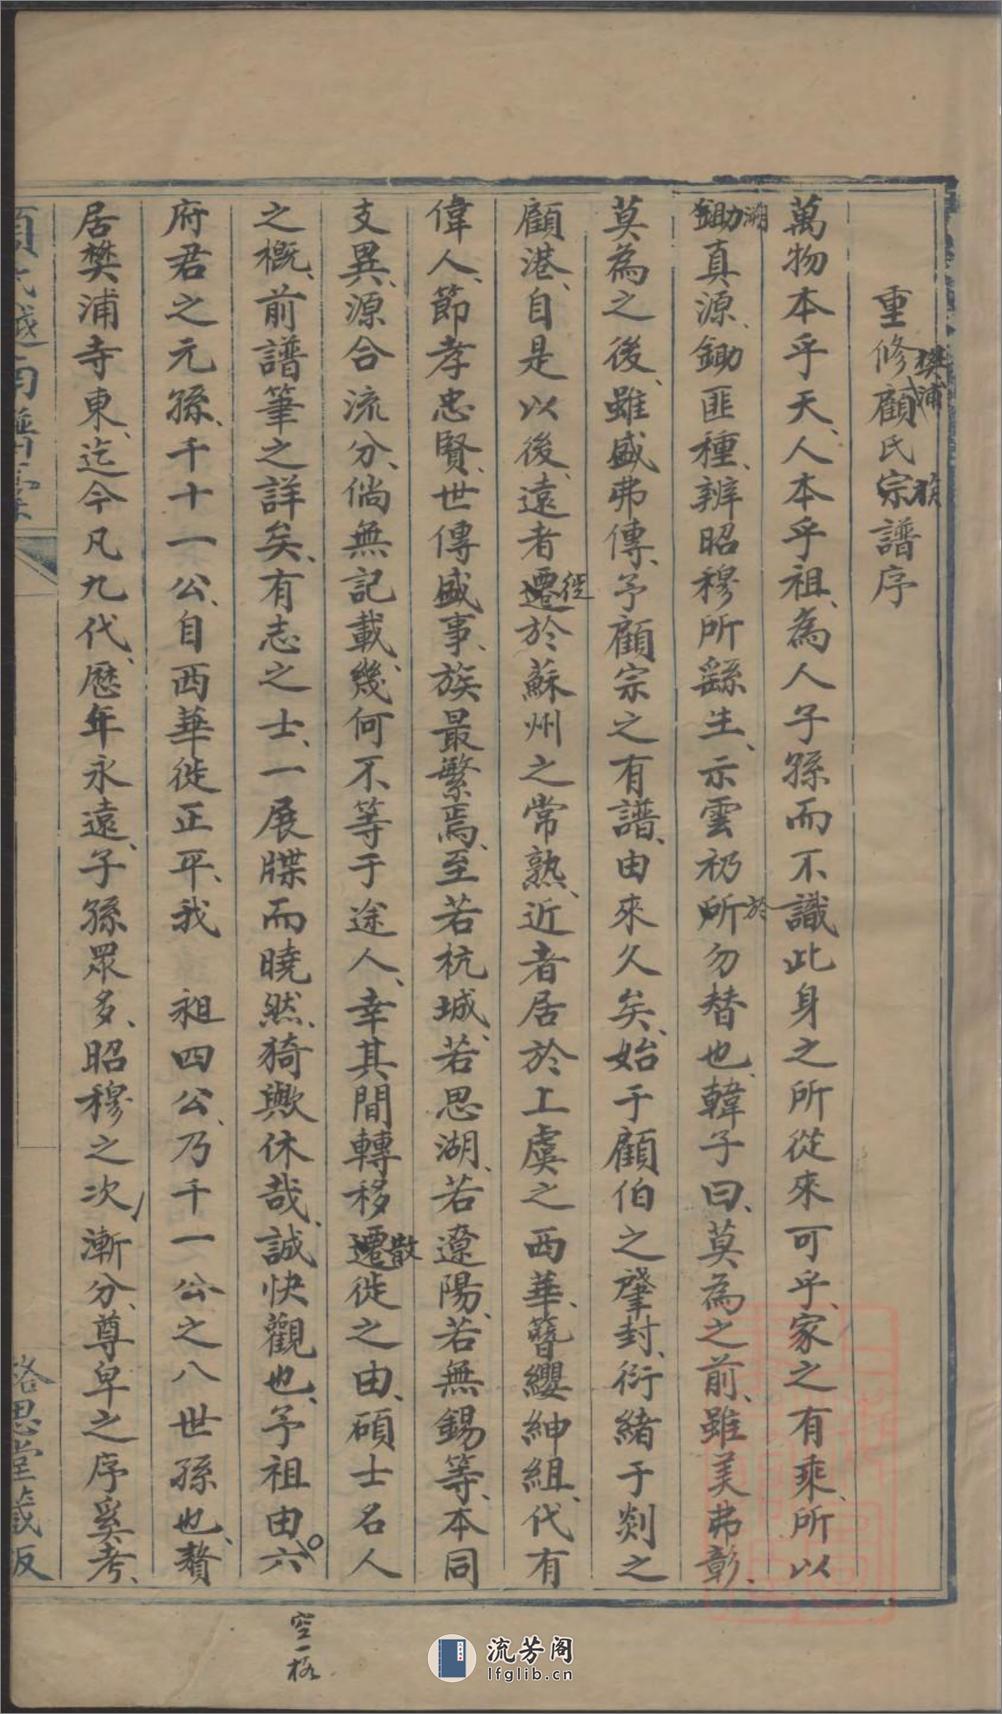 重修顧氏宗譜序
樊浦
族
萬物本乎天人本乎祖為人子孫而不識此身之所從來可乎家之有乘所以
鋤真源鋤匪種辨昭穆所繇生示雲礽所勿替也韓子曰莫為之前雖美弗彰
溯
於
莫為之後雖盛弗傳予顧宗之有譜由來久矣始于顧伯之肇封衍緒于剡之
顧港自是以後遠者遷於蘇州之常熟近者居於上虞之西華簪纓紳組代有
徙
偉人節孝忠賢世傳盛事族最繁焉至若杭城若思湖若遼陽若無錫等本同
支異源合流分倘無記載幾何不等于途人幸其間轉移遷徙之由碩士名人
散
之概前譜筆之詳矣有志之士一展牒而曉然猗歟休哉誠快觀也予祖由六
府君之元孫千十一公自西華徙正平我 祖四公乃千一公之八世孫也贅
居樊浦寺東迄今凡九代歷年永遠子孫眾多昭穆之次漸分尊卑之序奚考
空一格
流芳阁
lfglib.cn